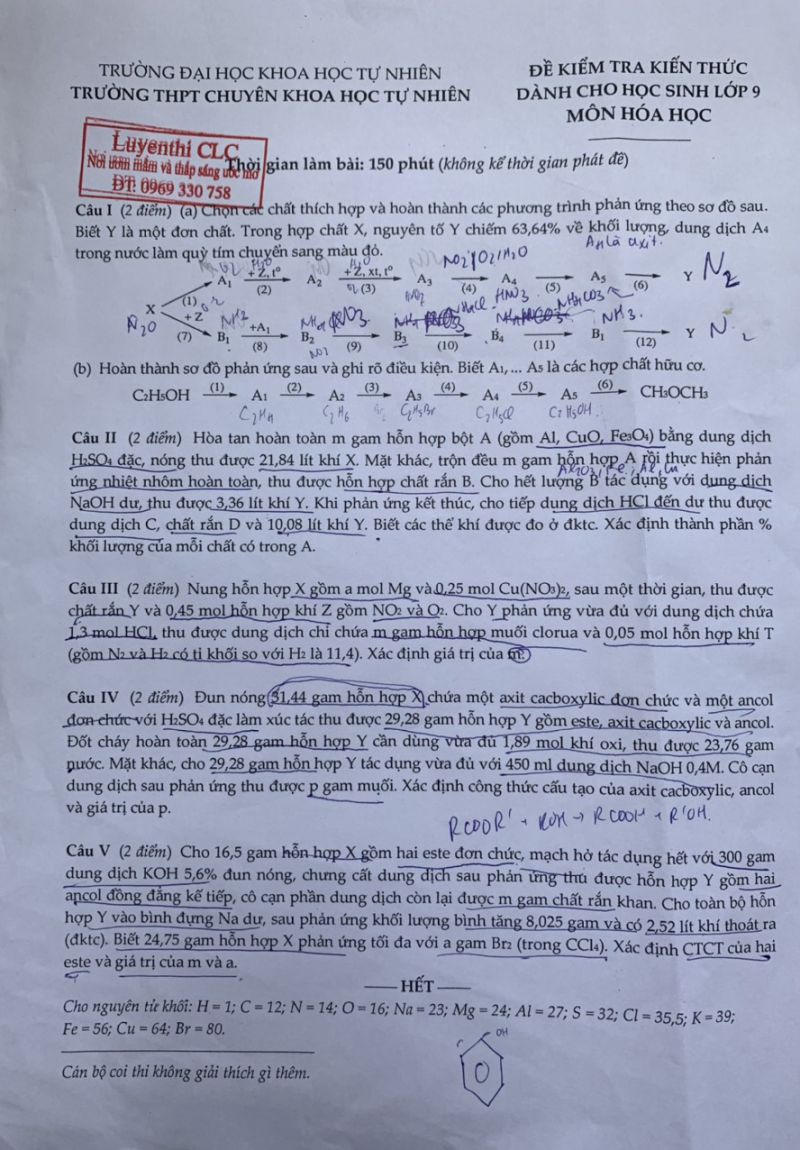 TRƯỜNG ĐẠI HỌC KHOA HỌC TỰ NHIÊN
TRƯỜNG THPT CHUYÊN KHOA HỌC TỰ NHIÊN
ĐỀ KIỂM TRA KIẾN THỨC
DÀNH CHO HỌC SINH LỚP 9
MÔN HÓA HỌC
Luyenthi CLC
Nơi ươm mầm và thắp sáng ước mơ
ĐT: 0969 330 758
Thời gian làm bài: 150 phút (không kể thời gian phát đề)
Câu I (2 điểm) (a) Chọn các chất thích hợp và hoàn thành các phương trình phản ứng theo sơ đồ sau.
Biết Y là một đơn chất. Trong hợp chất X, nguyên tố Y chiếm 63,64% về khối lượng, dung dịch A₄
trong nước làm quỳ tím chuyển sang màu đỏ.
A₄ là axit.
NO₂/O₂/H₂O
X (1) A₁ + Z, t° (2) A₂ + Z, xt, t° (3) A₃ (4) A₄ (5) A₅ (6) Y N₂
N₂O
HNO₃
+ Z (7) B₁ +A₁ (8) B₂ (9) B₃ (10) B₄ (11) B₁ (12) Y N₂
NH₃
(b) Hoàn thành sơ đồ phản ứng sau và ghi rõ điều kiện. Biết A₁,... A₅ là các hợp chất hữu cơ.
C₂H₅OH (1) A₁ (2) A₂ (3) A₃ (4) A₄ (5) A₅ (6) CH₃OCH₃
C₂H₄ C₂H₆ C₂H₅Br C₂H₅Cl C₂H₅OH
Câu II (2 điểm) Hòa tan hoàn toàn m gam hỗn hợp bột A (gồm Al, CuO, Fe₃O₄) bằng dung dịch
H₂SO₄ đặc, nóng thu được 21,84 lít khí X. Mặt khác, trộn đều m gam hỗn hợp A rồi thực hiện phản
ứng nhiệt nhôm hoàn toàn, thu được hỗn hợp chất rắn B. Cho hết lượng B tác dụng với dung dịch
NaOH dư, thu được 3,36 lít khí Y. Khi phản ứng kết thúc, cho tiếp dung dịch HCl đến dư thu được
dung dịch C, chất rắn D và 10,08 lít khí Y. Biết các thể khí được đo ở đktc. Xác định thành phần %
khối lượng của mỗi chất có trong A.
Câu III (2 điểm) Nung hỗn hợp X gồm a mol Mg và 0,25 mol Cu(NO₃)₂, sau một thời gian, thu được
chất rắn Y và 0,45 mol hỗn hợp khí Z gồm NO₂ và O₂. Cho Y phản ứng vừa đủ với dung dịch chứa
1,3 mol HCl, thu được dung dịch chỉ chứa m gam hỗn hợp muối clorua và 0,05 mol hỗn hợp khí T
(gồm N₂ và H₂ có tỉ khối so với H₂ là 11,4). Xác định giá trị của m.
Câu IV (2 điểm) Đun nóng 31,44 gam hỗn hợp X chứa một axit cacboxylic đơn chức và một ancol
đơn chức với H₂SO₄ đặc làm xúc tác thu được 29,28 gam hỗn hợp Y gồm este, axit cacboxylic và ancol.
Đốt cháy hoàn toàn 29,28 gam hỗn hợp Y cần dùng vừa đủ 1,89 mol khí oxi, thu được 23,76 gam
nước. Mặt khác, cho 29,28 gam hỗn hợp Y tác dụng vừa đủ với 450 ml dung dịch NaOH 0,4M. Cô cạn
dung dịch sau phản ứng thu được p gam muối. Xác định công thức cấu tạo của axit cacboxylic, ancol
và giá trị của p.
RCOOR' + KOH → RCOOH + R'OH.
Câu V (2 điểm) Cho 16,5 gam hỗn hợp X gồm hai este đơn chức, mạch hở tác dụng hết với 300 gam
dung dịch KOH 5,6% đun nóng, chưng cất dung dịch sau phản ứng thu được hỗn hợp Y gồm hai
ancol đồng đẳng kế tiếp, cô cạn phần dung dịch còn lại được m gam chất rắn khan. Cho toàn bộ hỗn
hợp Y vào bình đựng Na dư, sau phản ứng khối lượng bình tăng 8,025 gam và có 2,52 lít khí thoát ra
(đktc). Biết 24,75 gam hỗn hợp X phản ứng tối đa với a gam Br₂ (trong CCl₄). Xác định CTCT của hai
este và giá trị của m và a.
HẾT
Cho nguyên tử khối: H = 1; C = 12; N = 14; O = 16; Na = 23; Mg = 24; Al = 27; S = 32; Cl = 35,5; K = 39;
Fe = 56; Cu = 64; Br = 80.
OH
Cán bộ coi thi không giải thích gì thêm.